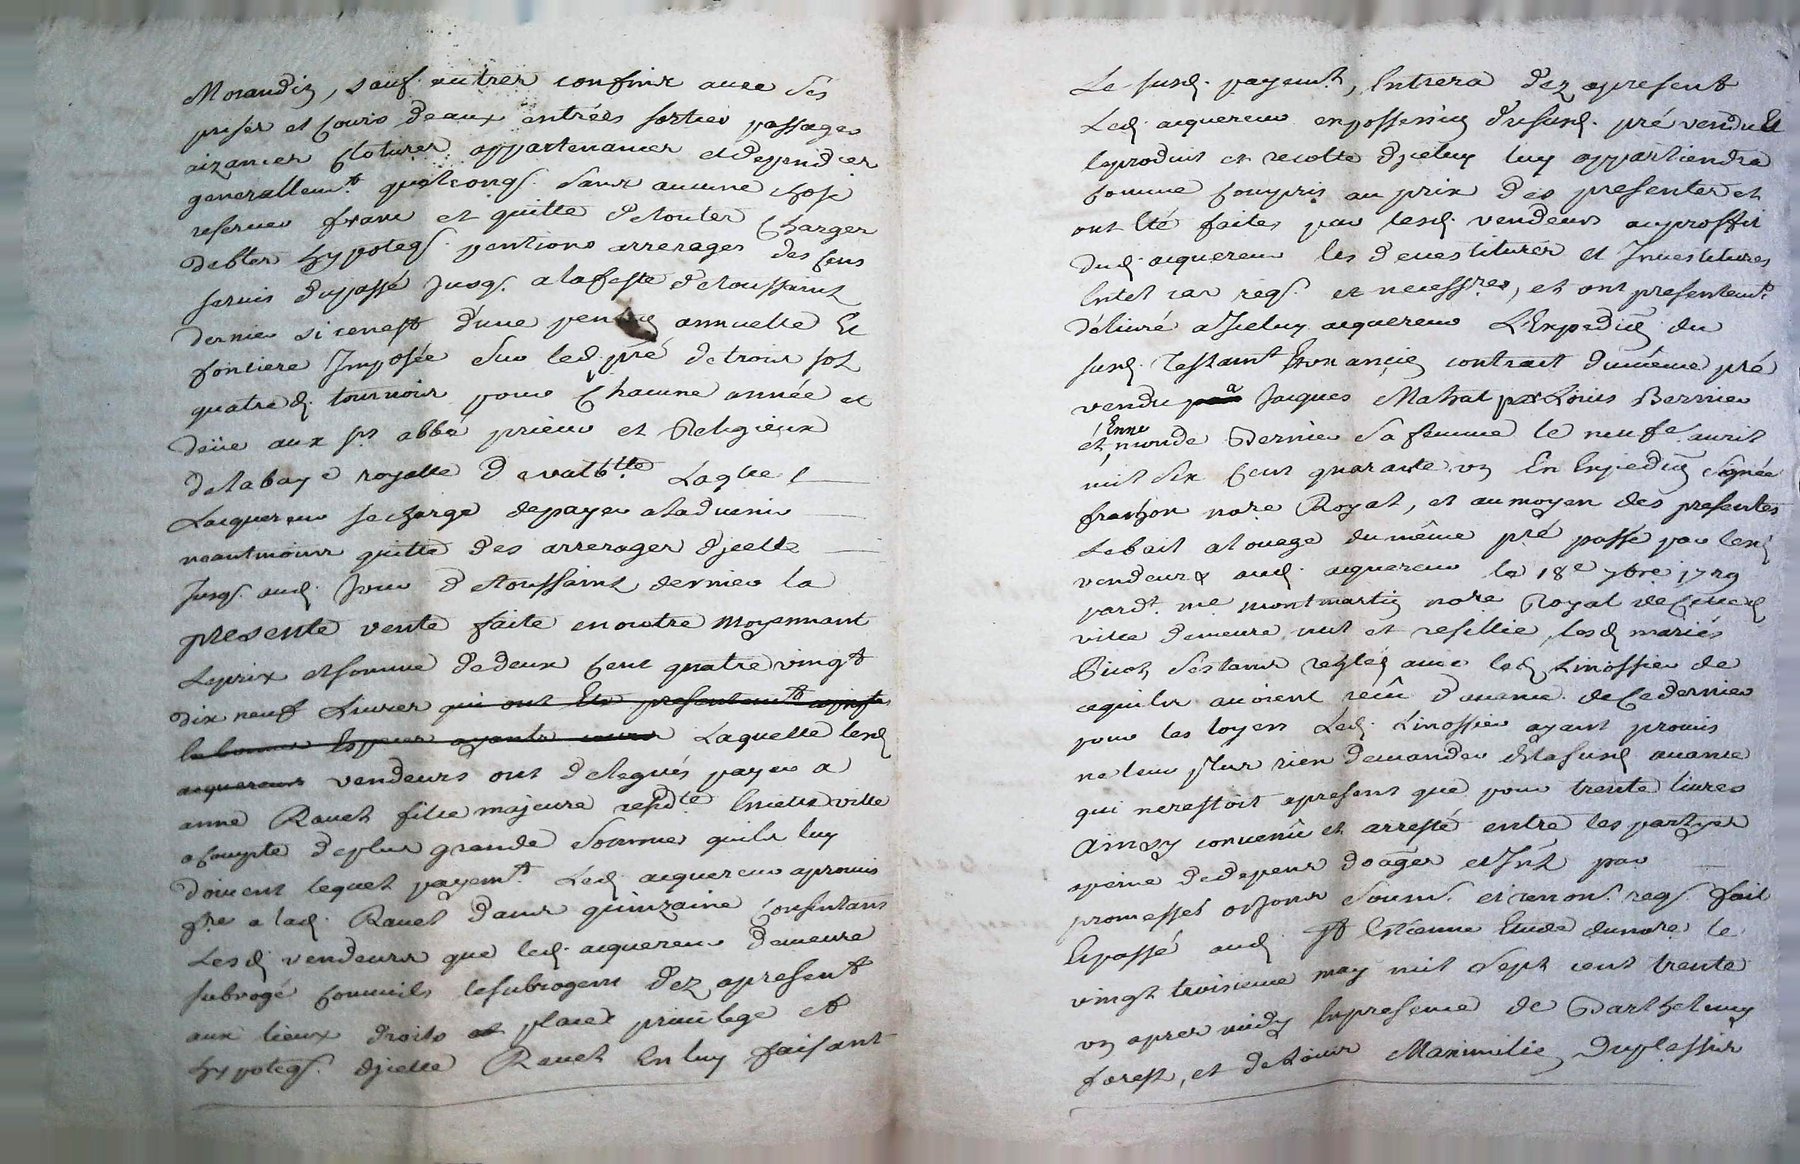 Morandin, sauf autres confins avec ses
prises et cours deaux entrées sorties passages
aizances clotures appartenances et dependces
generallemt. quelconqs. sans aucune chose
reserver franc et quitte de toutes charges
debtes hypoteqs. pentions arrerages des cens
servis du passé jusqs. a la feste de toussaint
dernier si ce nest d'une pention annuelle et
fonciere Imposée sur led. pré de trois sols
quatre d. tournois pour chacune année et
deüe aux srs abbé prieur et Religieux
de labaye royalle de valbtte Laqlle
Lacquereur se charge de payer a ladvenir
neantmoins quitte des arrerages d'jcelle
jusqs. aud. jour de toussaint dernier la
presente vente faite en outre moyennant
Le prix et somme de deux cent quatre vingt
dix neuf Livres qui ont Eté presentemt
Laquelle lesd.
acquereurs vendeurs ont delegués payer a
anne Ravet fille majeure residte En cette ville
a compte de plus grande somme quils luy
doivent lequel payemt. Led. acquereur a promis
fre a lad. Ravet dans quinzaine consentans
Lesd. vendeurs que led. acquereur demeure
subrogé comme ils le subrogent dez apresent
aux lieux droits et place privilege et
hypoteqs. d'jcelle Ravet En luy faisant
Le susd. payemt, Entrera dez apresent
Led. acquereur en possession du susd. pré vendu Et
le produit et recolte d'jceluy luy appartiendra
comme compris au prix des presentes et
ont Eté faites par lesd. vendeurs au proffit
dud. acquereur les devestitures et Investitures
En tel cas reqs. et necessres, et ont presentemt.
délivré a Jceluy acquereur L'Expedion du
susd. contrait du même pré
vendu a Jacques Mahat par Louis Bernier
et Ennemonde Bernier sa femme le neufe. avril
mil six cent quarante un En Expedion signée
franchon nore Royal, et au moyen des presentes
Le bail a louage du même pré passé par lesd.
vendeurs aud. acquereur le 18e 7bre 1729
pardt. me montmartin nore Royal de cette
ville demeure nul et resillié, lesd mariés
Picon s'estans reglés avec led. Linossier de
ce quils avoient reçû d'avance de ce dernier
pour les loyers Led. Linossier ayant promis
ne leur plus rien demander de la susd. avance
qui ne restoit apresent que pour trente livres
Ainsy convenû et arresté entre les partyes
a peine de depens domages et Intz par
promesses obons soums. et renons. reqs. fait
Et passé aud. St Estienne Etude du nore. le
vingt troisieme may mil sept cent trente
un apres midy En presence de Barthelemy
forest, et de Louis Maximilien Duplessis